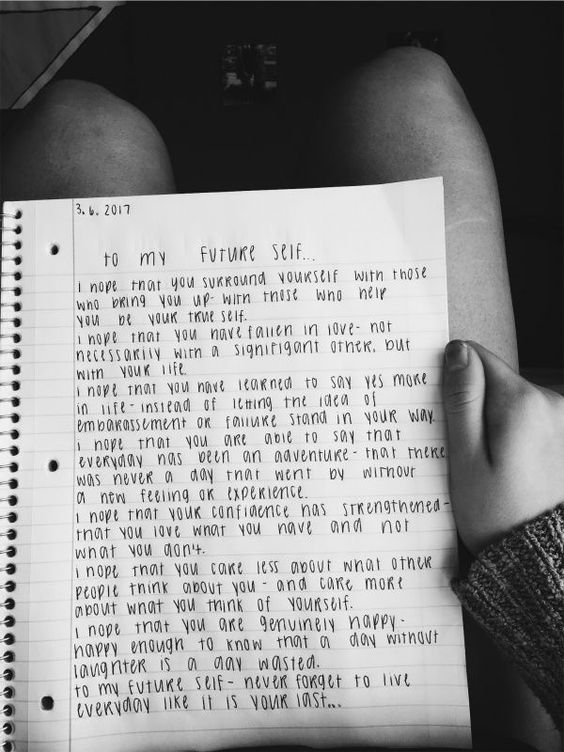 3.6.2017
to my future self...
i hope that you surround yourself with those
who bring you up- with those who help
you be your true self.
i hope that you have fallen in love- not
necessarily with a signifigant other, but
with your life.
i hope that you have learned to say yes more
in life- instead of letting the idea of
embarassement or failure stand in your way.
i hope that you are able to say that
everyday has been an adventure- that there
was never a day that went by without
a new feeling or experience.
i hope that your confidence has strengthened-
that you love what you have and not
what you don't.
i hope that you care less about what other
people think about you- and care more
about what you think of yourself.
i hope that you are genuinely happy-
happy enough to know that a day without
laughter is a day wasted.
to my future self- never forget to live
everyday like it is your last...